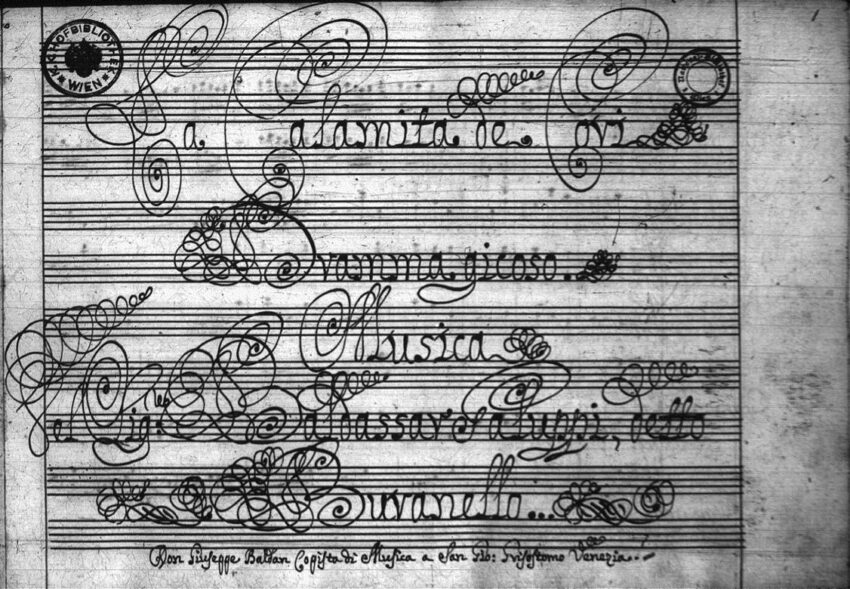 K.K. HOFBIBLIOTHEK WIEN
1
La Calamita de Cori
Dramma giocoso.
Musica
Del Sig.r Baldassar Galuppi, detto
Buranello...
Don Giuseppe Baldan Copista di Musica a San Gio: Grisostomo Venezia..